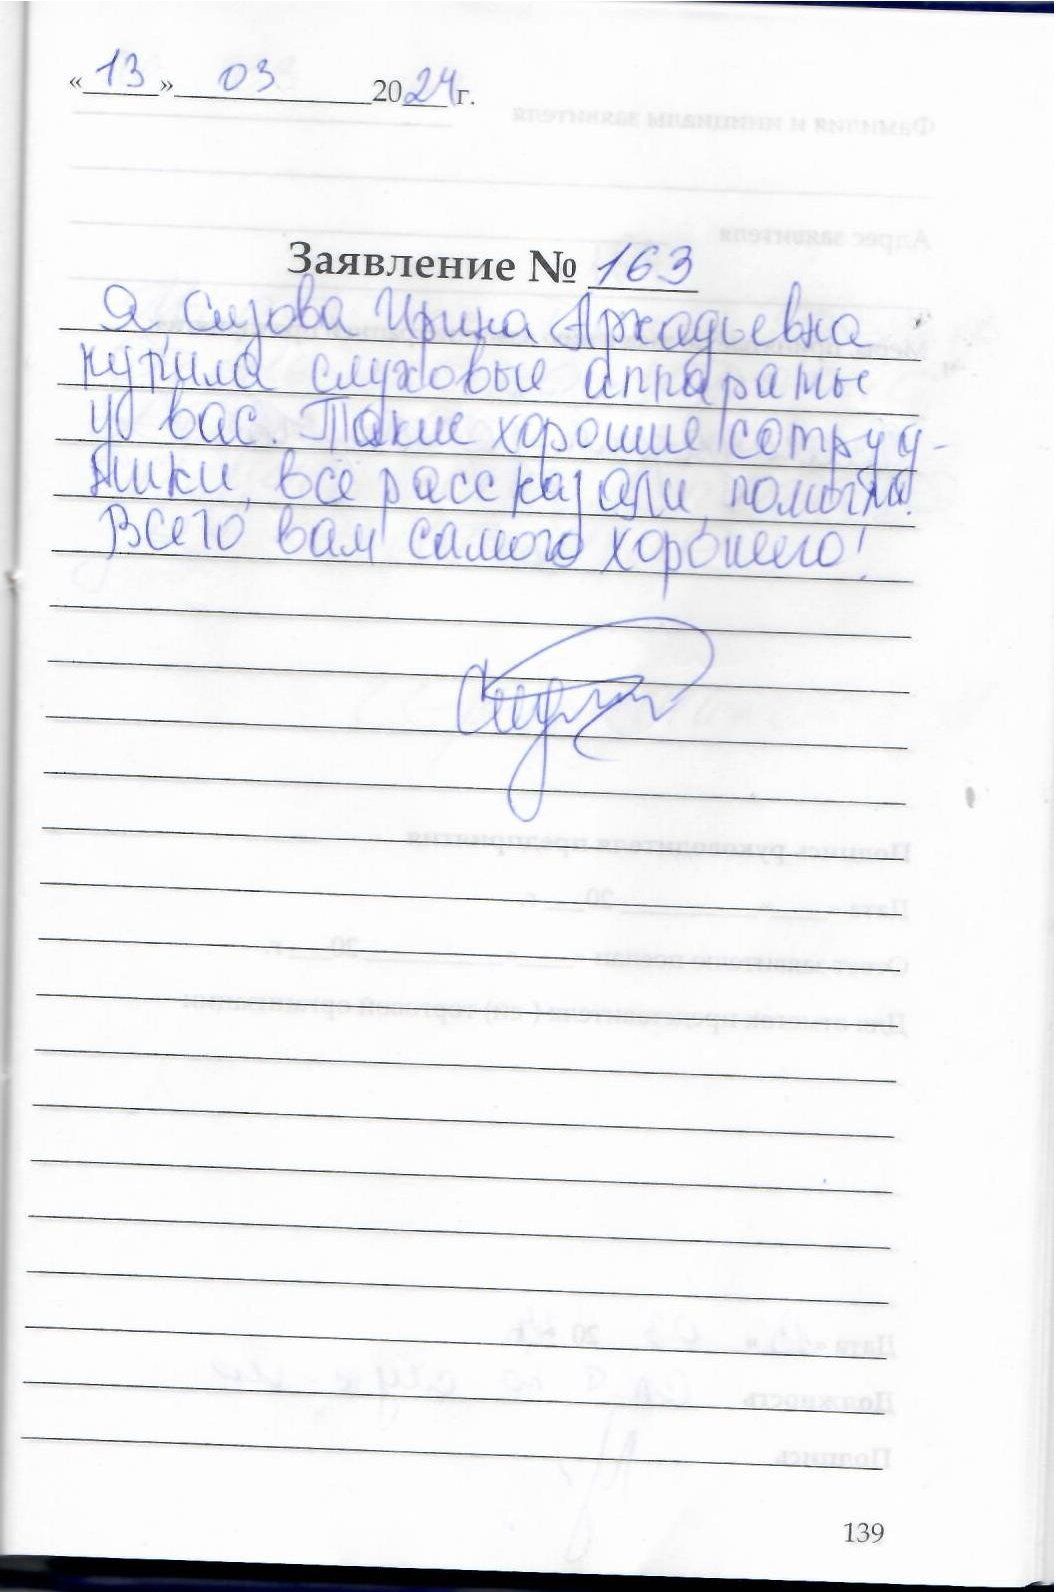 «13» 03 2024 г.
Заявление № 163
Я, Сизова Ирина Аркадьевна
купила слуховые аппараты
у вас. Такие хорошие сотруд-
ники, всё рассказали, помогли.
Всего вам самого хорошего!
139